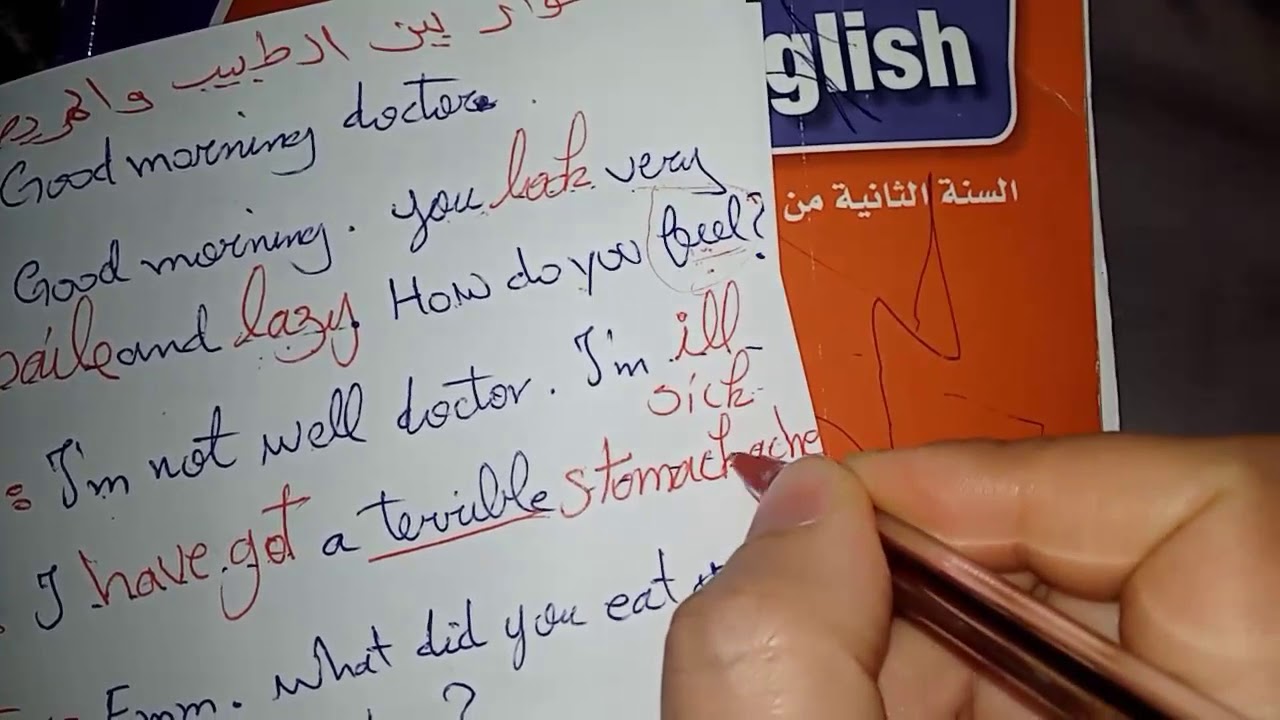 حوار بين الطبيب والمريض
Good morning doctor.
Good morning. you look very
paile and lazy. How do you feel?
I'm not well doctor. I'm ill
sick
I have got a terrible stomachache
Emm. What did you eat
?
glish
السنة الثانية من